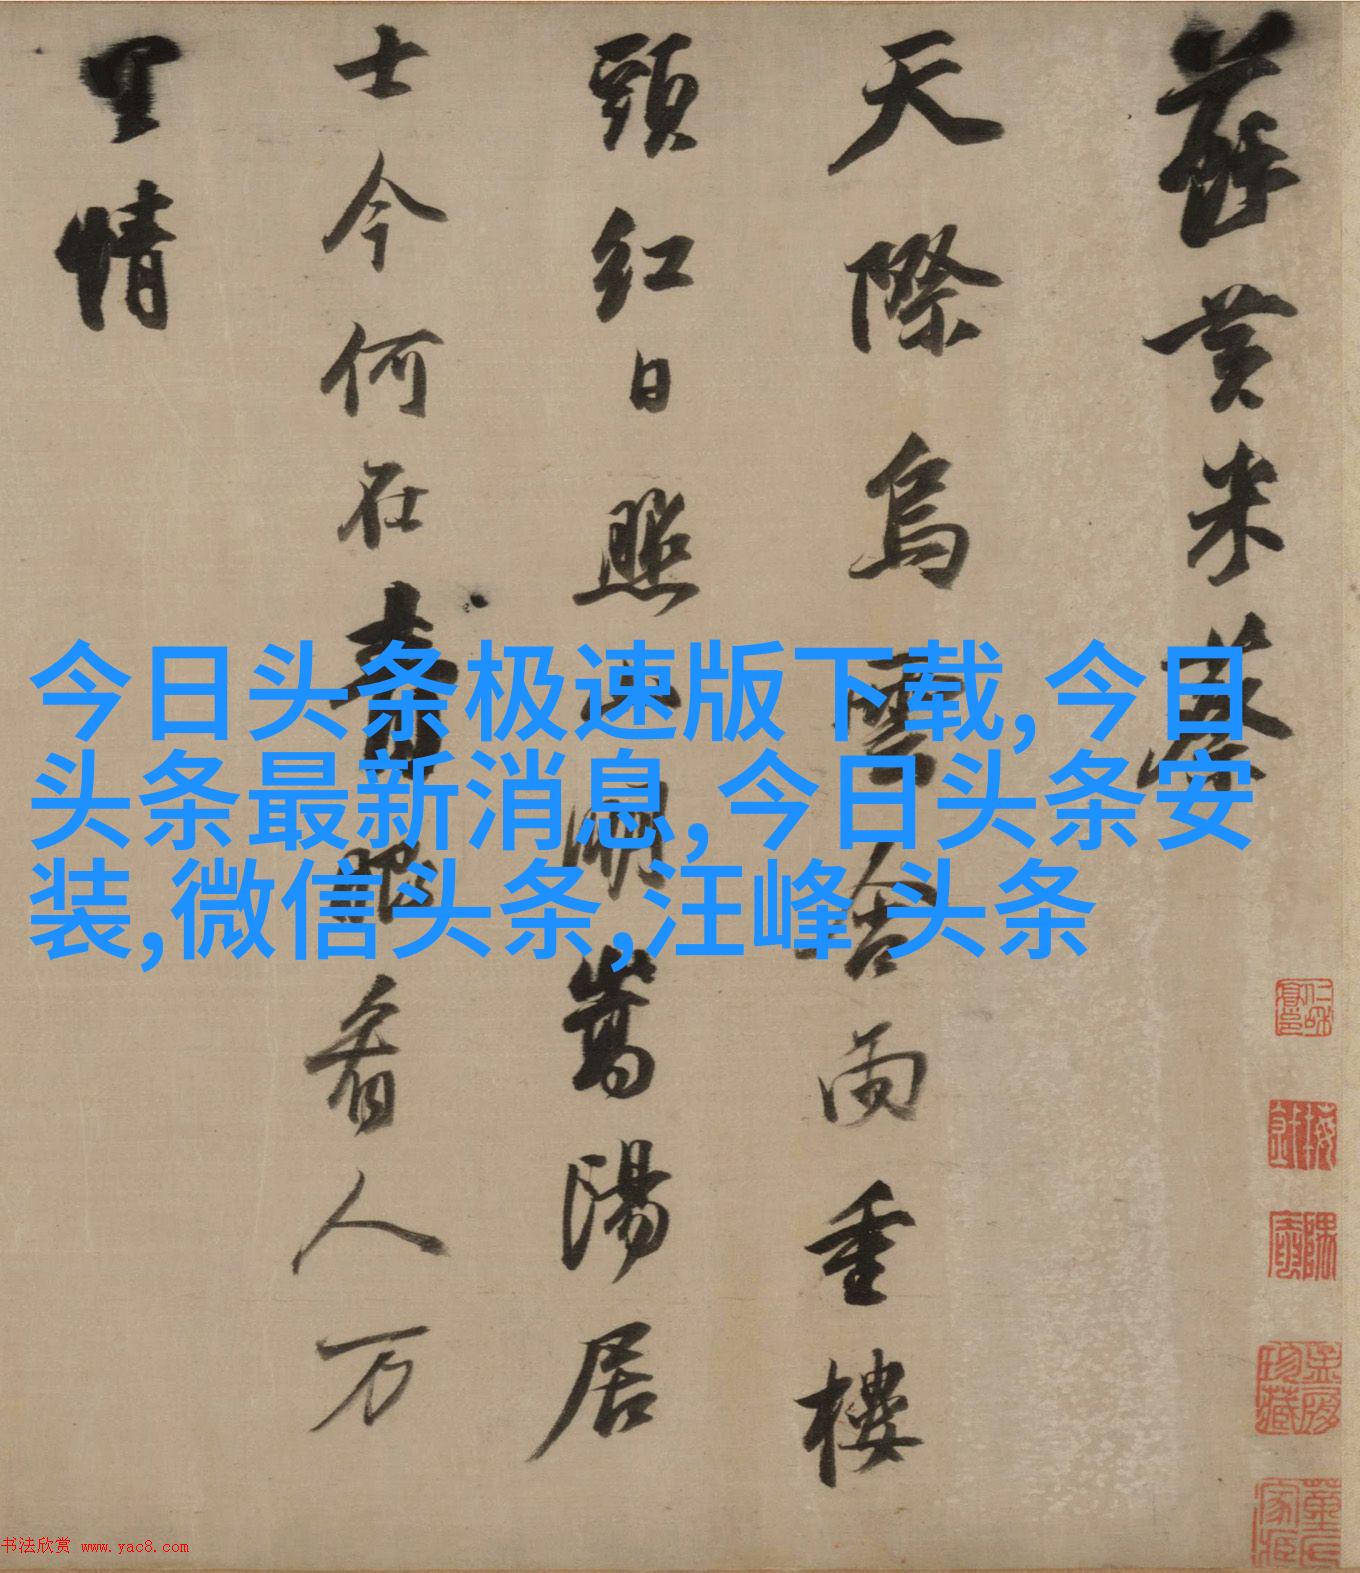 蘇黄米蔡
天際烏雲含雨重樓
頭紅日照山明嵩陽居
士今何在青眼看人万
里情
今日头条极速版下载,今日
头条最新消息,今日头条安
装,微信头条,汪峰 头条
书法欣赏 www.yac8.com